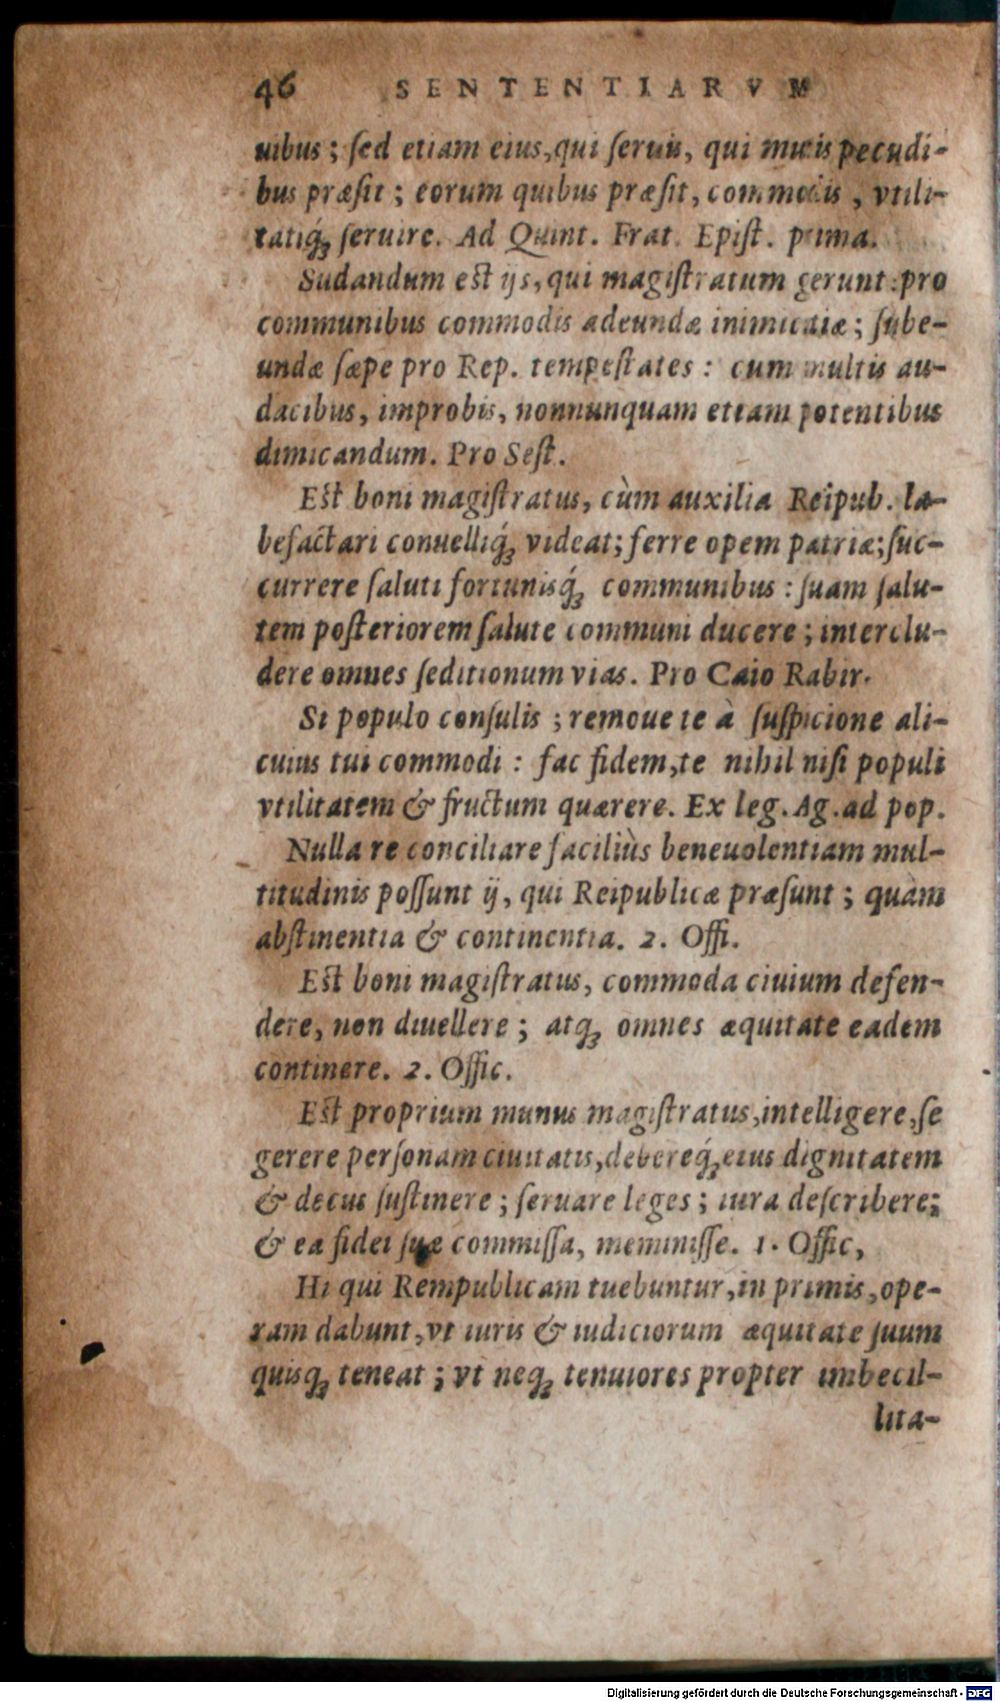 46 SENTENTIARVM
uibus; ſed etiam eius, qui ſeruis, qui mutis pecudi-
bus præſit; eorum quibus præſit, commodis, vtili-
tatiq́ꝫ ſeruire. Ad Quint. Frat. Epiſt. prima.
Sudandum est ijs, qui magiſtratum gerunt: pro
communibus commodis adeundæ inimicitiæ; ſube-
undæ ſæpe pro Rep. tempeſtates: cum multis au-
dacibus, improbis, nonnunquam etiam potentibus
dimicandum. Pro Seſt.
Est boni magiſtratus, cùm auxilia Reipub. la-
befactari conuelliq́ꝫ videat; ferre opem patriæ; ſuc-
currere ſaluti fortunisq́ꝫ communibus: ſuam ſalu-
tem poſteriorem ſalute communi ducere; interclu-
dere omnes ſeditionum vias. Pro Caio Rabir.
Si populo conſulis; remoue te à ſuſpicione ali-
cuius tui commodi: fac fidem, te nihil niſi populi
vtilitatem & fructum quærere. Ex leg. Ag. ad pop.
Nulla re conciliare faciliùs beneuolentiam mul-
titudinis poſſunt ij, qui Reipublicæ præſunt; quàm
abſtinentia & continentia. 2. Offi.
Est boni magiſtratus, commoda ciuium defen-
dere, non diuellere; atqꝫ omnes æquitate eadem
continere. 2. Offic.
Est proprium munus magiſtratus, intelligere, ſe
gerere perſonam ciuitatis, debereq́ꝫ eius dignitatem
& decus ſuſtinere; ſeruare leges; iura deſcribere;
& ea fidei ſuæ commiſſa, meminiſſe. 1. Offic,
Hi qui Rempublicam tuebuntur, in primis, ope-
ram dabunt, vt iuris & iudiciorum æquitate ſuum
quisqꝫ teneat; vt neqꝫ tenuiores propter imbecil-
lita-
Digitalisierung gefördert durch die Deutsche Forschungsgemeinschaft - DFG